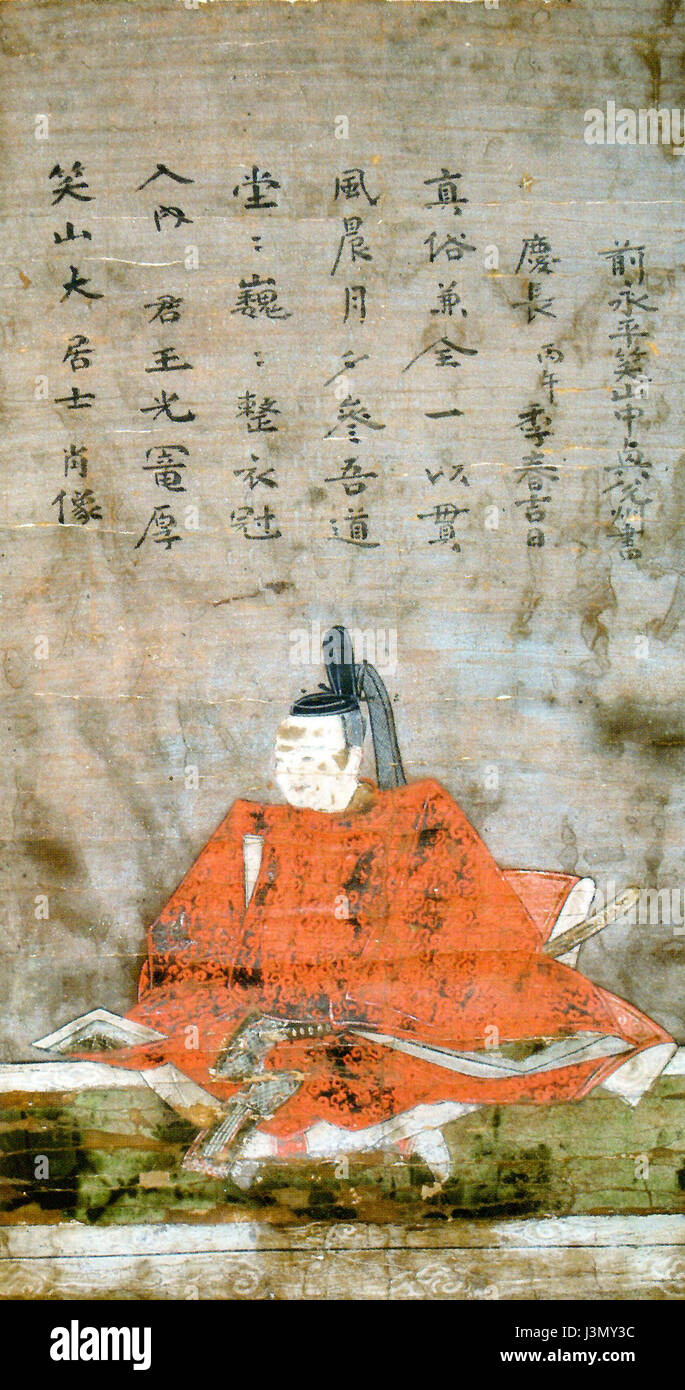 笑山大居士肖像
入内 君王光寵厚
堂〻巍〻整衣冠
風晨月夕參吾道
真俗兼全一以貫
慶長丙午季春吉日
前永平笑山中書
alamy
alamy
Image ID: J3MY3C
www.alamy.com